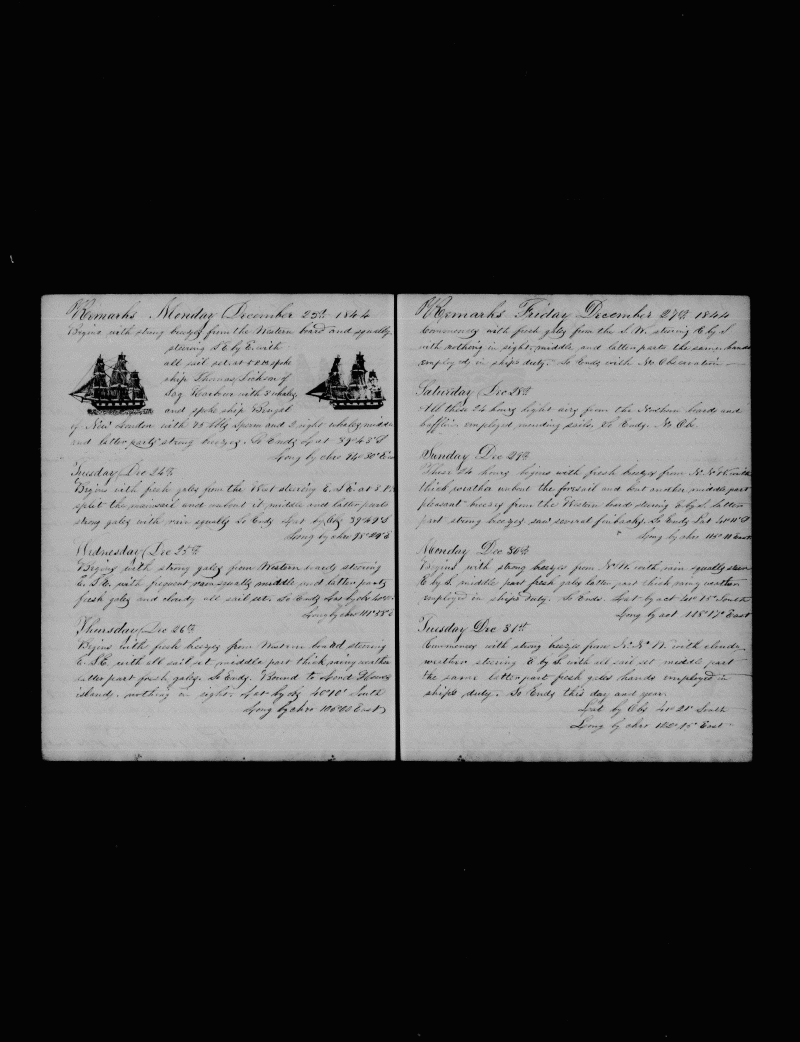 Remarks Monday December 23th 1844
Begins with strong breezes from the Western board and squally
steering S.E. by E. with
all sail set. at 5 P.M. spoke
ship Thomas Dickson of
Sag Harbour with 3 whales
and spoke ship Bengal
of New London with 75 bbls Sperm and 2 right whales middle
and latter parts strong breezes. So Ends Lat 39° 43' S
Long by chro 94° 30' East
Tuesday Dec 24th
Begins with fresh gales from the West steering E.S.E. at 8 P.M.
split the mainsail and unbent it middle and latter parts
strong gales with rain squalls So Ends Lat by Obs 39° 49' S
Long by chro 98° 29' E
Wednesday Dec 25th
Begins with strong gales from Western board steering
E.S.E. with frequent rain squalls middle and latter parts
fresh gales and cloudy all sail set. So Ends
Long by chro
Thursday Dec 26th
Begins with fresh breezes from Western board steering
E.S.E. with all sail set middle part thick rainy weather
latter part fresh gales. So Ends. Bound to
island. nothing in sight. Lat by 40° 10' South
Long by chro East
Remarks Friday December 27th 1844
Commences with fresh gales from the S.W. steering E by S
with nothing in sight. middle and latter parts the same. hands
employed in ships duty. So Ends with No Observation
Saturday Dec 28th
All this 24 hours light airs from the Northern boards and
baffling employed mending sails. So Ends. No Obs.
Sunday Dec 29th
These 24 hours begins with fresh breezes from N.N.W. with
thick weather unbent the foresail and bent another middle part
pleasant breezes from the Western board steering E by S. latter
part strong breezes. saw several finbacks. So Ends Lat 41° 11' S
Long by chro East
Monday Dec 30th
Begins with strong breezes from N.W. with rain squalls steer
E by S. middle part fresh gales latter part thick rainy weather
employed in ships duty. So Ends. Lat by act 41° 15' South
Long by act 118° 17' East
Tuesday Dec 31st
Commences with strong breezes from N.N.W. with cloudy
weather steering E by S with all sail set middle part
the same latter part fresh gales hands employed in
ships duty. So Ends this day and year.
Lat by Obs 41° 21' South
Long by chro East